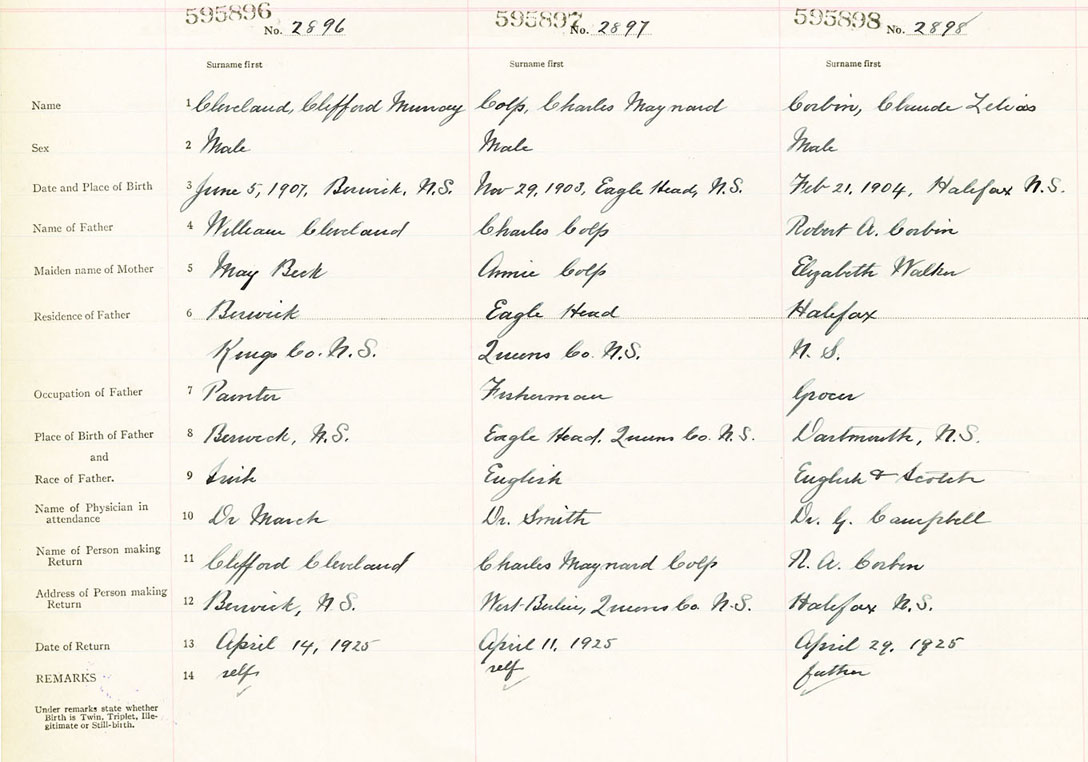 595896 595897 595898
No. 2896 No. 2897 No. 2898
Surname first Surname first Surname first
Name 1 Cleveland, Clifford Murray Colp, Charles Maynard Corbin, Claude
Sex 2 Male Male Male
Date and Place of Birth 3 June 5, 1907, Berwick, N.S. Nov 29, 1903, Eagle Head, N.S. Feb 21, 1904, Halifax N.S.
Name of Father 4 William Cleveland Charles Colp Robert A. Corbin
Maiden name of Mother 5 May Beck Annie Colp Elizabeth Walker
Residence of Father 6 Berwick Eagle Head Halifax
Kings Co. N.S. Queens Co. N.S. N. S.
Occupation of Father 7 Painter Fisherman Grocer
Place of Birth of Father 8 Berwick, N.S. Eagle Head, Queens Co. N.S. Dartmouth, N.S.
and
Race of Father. 9 Irish English English & Scotch
Name of Physician in
attendance 10 Dr March Dr. Smith Dr. G. Campbell
Name of Person making
Return 11 Clifford Cleveland Charles Maynard Colp R. A. Corbin
Address of Person making
Return 12 Berwick, N.S. West Berlin, Queens Co. N.S. Halifax N.S.
Date of Return 13 April 14, 1925 April 11, 1925 April 29, 1925
REMARKS 14 self self father
Under remarks state whether
Birth is Twin, Triplet, Ille-
gitimate or Still-birth.